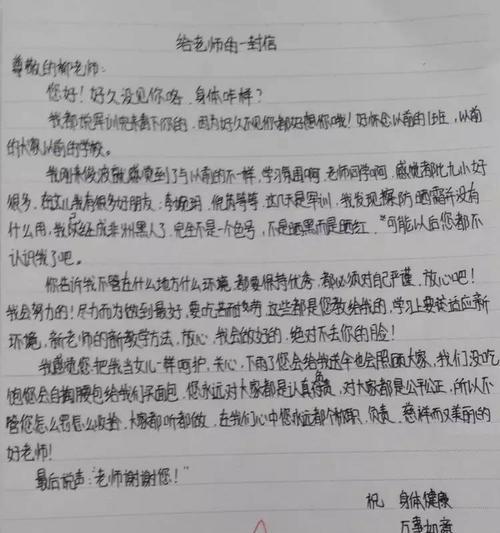 给老师的一封信
尊敬的柳老师：
您好！好久没见你咯，身体咋样？
我都说军训完来看下你的，因为好久不见你都好想你哦！好怀念以前的1班，以前
的大家以前的学校。
我刚来做没就感觉到了与以前的不一样，学习氛围啊，老师同学啊，感觉都比九小好
很多，在这儿我有很多好朋友：李婉玥，等等，这几天是军训，我发现擦防晒霜并没有
什么用，我已经成非洲黑人了，完全不是一个色号，不是晒黑而是晒红，"可能以后您都不
认识我了吧。
你告诉我不管在什么地方什么环境，都要保持优秀，都必须对自己严谨，放心吧！
我会努力的！尽力而为做到最好，要吃苦耐劳，这些都是您教给我的，学习上要去适应新
环境，新老师的新教学方法，放心，我会做好的，绝对不丢你的脸！
我感觉您把我当女儿一样呵护，关心，下雨了您会给我送伞也会照顾大家，我们没吃
饱您会自掏腰包给我们买面包，您永远对大家都是认真负责，对大家都是公平公正，所以不
管您怎么罚怎么收拾，大家都听都做，在我们心中您永远都个称职，负责，慈祥而又美丽的
好老师！
最后说声："老师谢谢您！"
祝 身体健康
万事如意